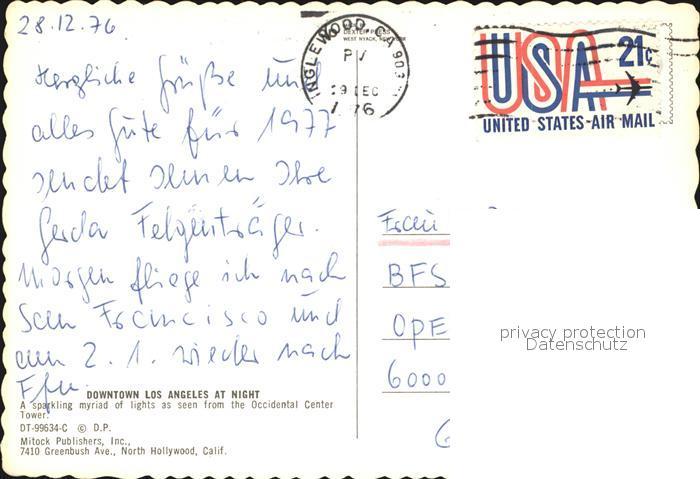 28.12.76
Herzliche Grüße und
alles Gute für 1977
sendet Ihnen Ihre
Gerda Felgenträger.
Morgen fliege ich nach
San Francisco und
am 2. 1. wieder nach
Ffm.
DOWNTOWN LOS ANGELES AT NIGHT
A sparkling myriad of lights as seen from the Occidental Center
Tower.
DT-99634-C © D.P.
Mitock Publishers, Inc.,
7410 Greenbush Ave., North Hollywood, Calif.
DEXTER PRESS
WEST NYACK, NEW YORK
INGLEWOOD, CA 903
PM
29 DEC
1976
USA 21c
UNITED STATES-AIR MAIL
Frau
BFS
OPE
6000
privacy protection
Datenschutz